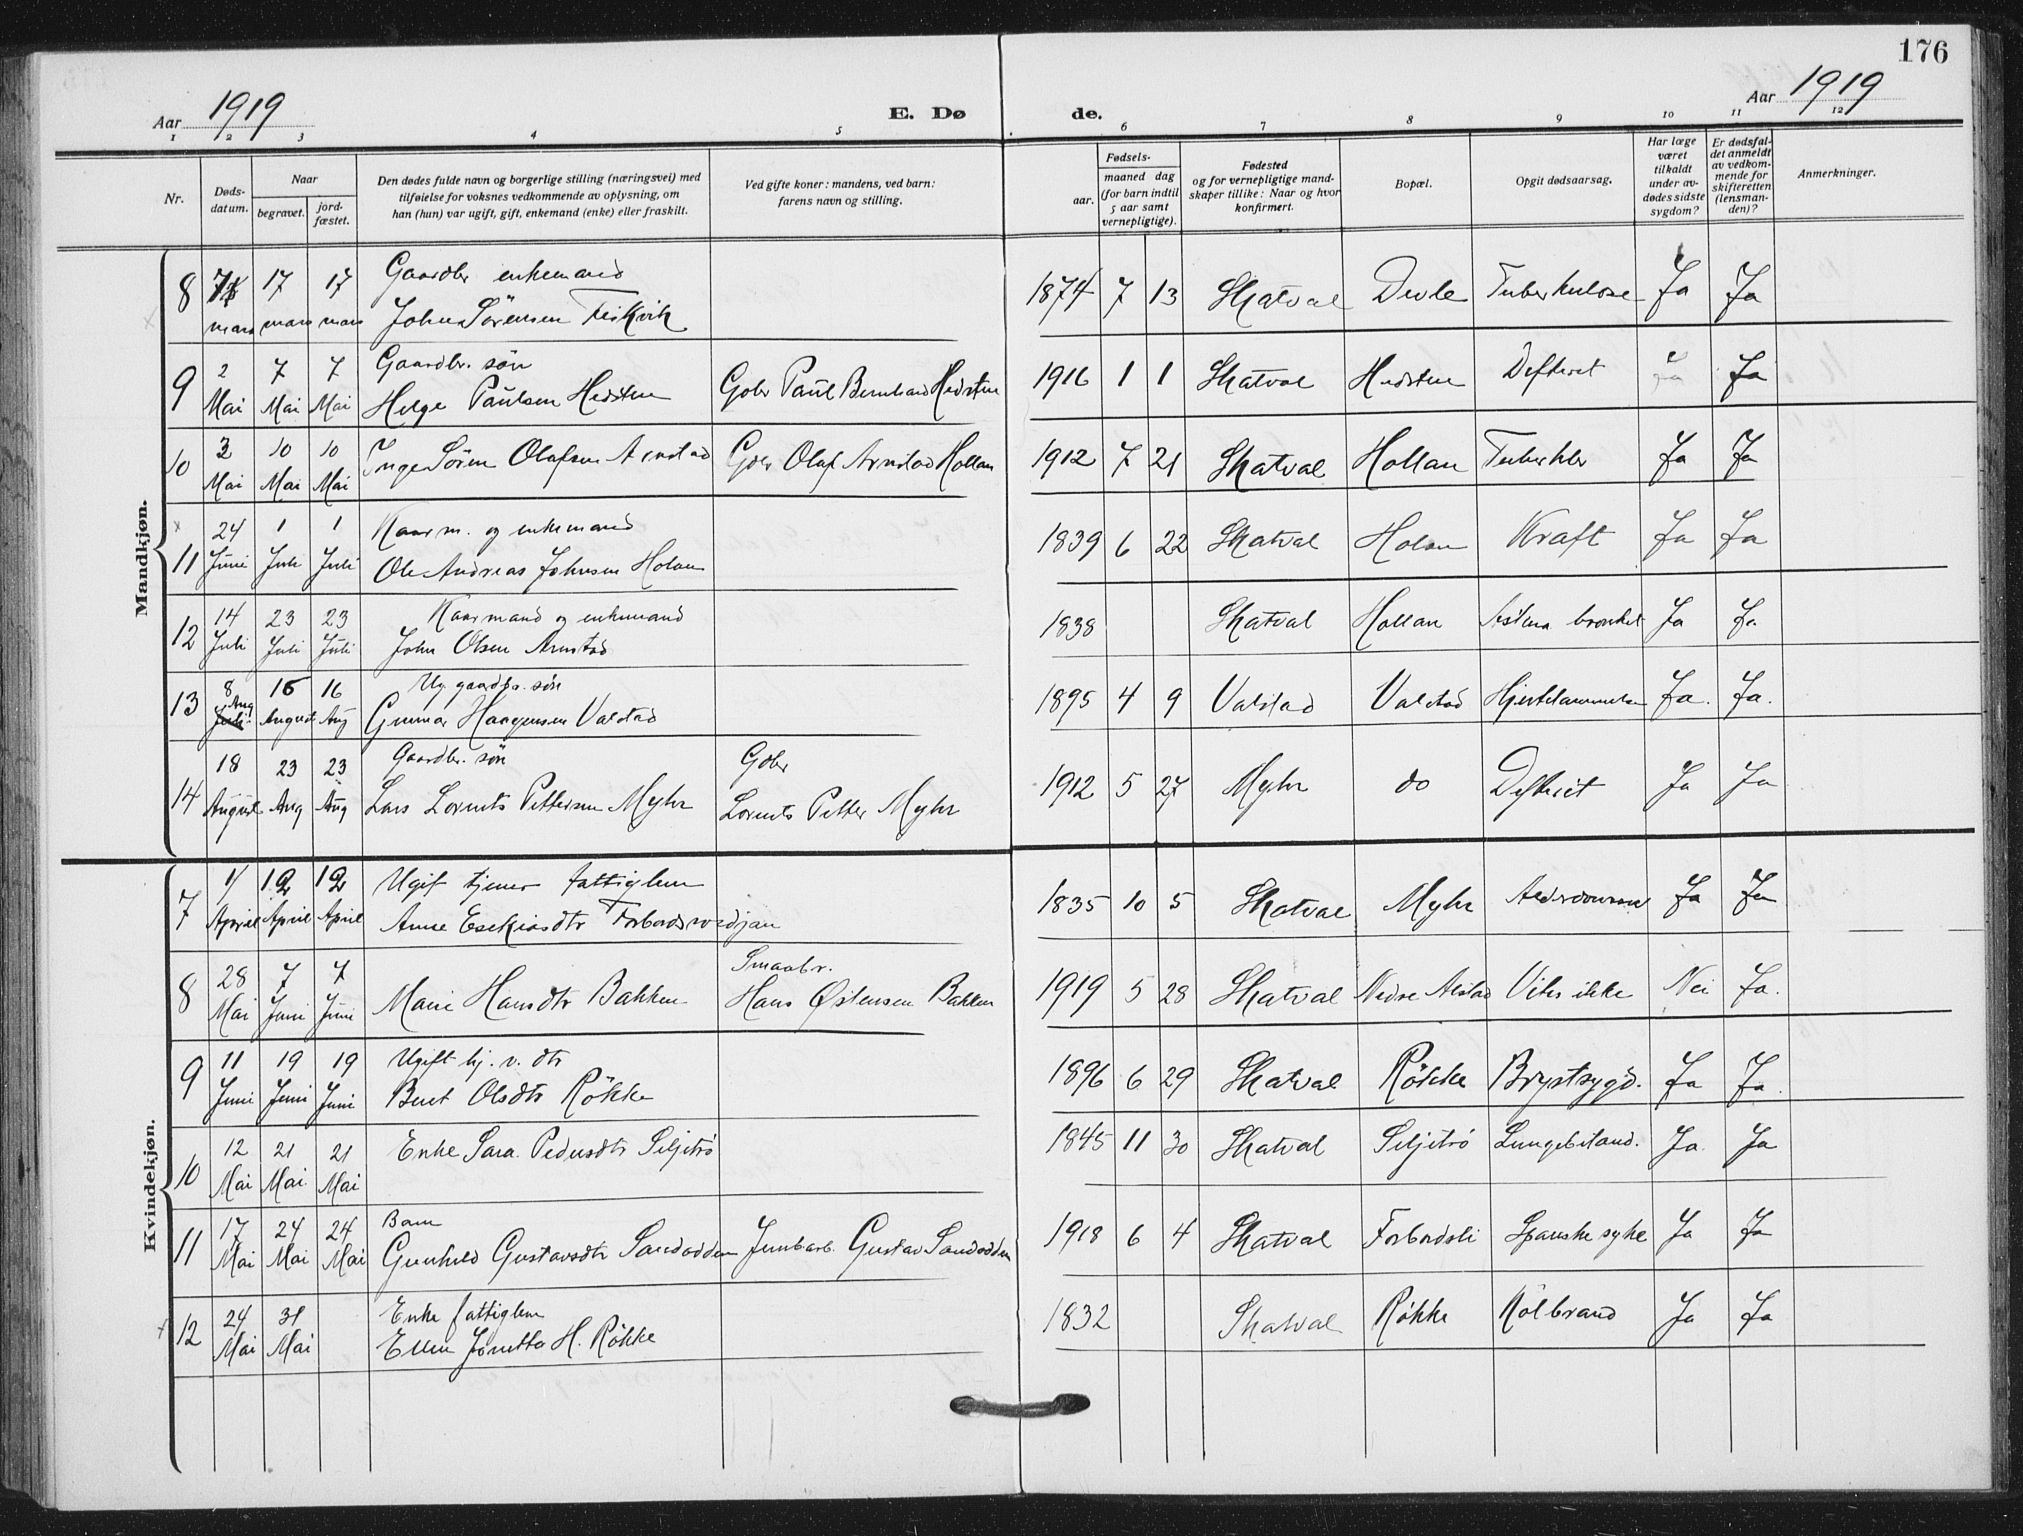 176
Aar 1919
E. Dø de.
Aar 1919
1 2 3 4 5 6 7 8 9 10 11 12
Nr.
Døds-
datum.
Naar
begravet.
jord-
fæstet.
Den dødes fulde navn og borgerlige stilling (næringsvei) med
tilføielse for voksnes vedkommende av oplysning, om
han (hun) var ugift, gift, enkemand (enke) eller fraskilt.
Ved gifte koner: mandens, ved barn:
farens navn og stilling.
Fødsels-
aar.
maaned dag
(for barn indtil
5 aar samt
vernepligtige).
Fødested
og for vernepligtige mand-
skaper tillike: Naar og hvor
konfirmert.
Bopæl.
Opgit dødsaarsag.
Har læge
været
tilkaldt
under av-
dødes sidste
sygdom?
Er dødsfal-
det anmeldt
av vedkom-
mende for
skifteretten
(lensman-
den)?
Anmerkninger.
Mandkjøn.
Gaardbr enkemand
8 17 17 1874 7 13 Skatval Tuberkulose Ja Ja
mars mars mars John Sørensen Fiskvik
Gaardbr. søn
9 2 7 7 1916 1 1 Skatval Hedsten Difterit Ja Ja
Mai Mai Mai Helge Paulsen Hedsten Gbr Paul Bernhard Hedsten
10 3 10 10 Inge Sören Olafsen Arnstad Gbr Olaf Arnstad Hollan 1912 7 21 Skatval Hollan Tuberkler Ja Ja
Mai Mai Mai
24 1 1 Kaarm. og enkemand
11 Juni Juli Juli Ole Andreas Johnsen Holan 1839 6 22 Skatval Holan Kraft Ja Ja
14 23 23 Kaarmand og enkemand
12 Juli Juli Juli John Olsen Arnstad 1838 Skatval Hollan Astma bronkit Ja Ja
8 16 16 Ug. gaardbr. søn
13 Aug August Aug Gunnar Haagensen Valstad 1895 4 9 Valstad Valstad Hjertelammelse Ja. Ja.
18 23 23 Gaardbr. søn Gbr
14 August Aug Aug Lars Lorents Pettersen Myhr Lorents Petter Myhr 1912 5 27 Myhr do Difterit Ja Ja
Kvindekjøn.
12 12 Ugift tjener fattiglem
7 April April April Anne Esekiasdtr 1835 10 5 Skatval Myhr Ja Ja
28 7 7 Smaabr.
8 Mai Juni Juni Marie Hansdtr Bakken Hans Østensen Bakken 1919 5 28 Skatval Nedre Alstad Vites ikke Nei Ja.
11 19 19 Ugift hj. v. dtr
9 Juni Juni Juni Beret Olsdtr Røkke 1896 6 29 Skatval Røkke Brystsygd. Ja Ja.
12 21 21 Enke Sara Pedersdtr Siljetrø 1845 11 30 Skatval Siljetrø Lungebetænd. Ja. Ja
10 Mai Mai Mai
17 24 24 Barn
11 Mai Mai Mai Gunhild Gustavsdtr Sandodden Jernbarb. Gustav Sandodden 1918 6 4 Skatval Forbordsli Spanske syke Ja Ja
24 31 Enke fattiglem
12 Mai Mai Ellen Jonetta H. Røkke 1832 Skatval Røkke Kolbrand Ja Ja